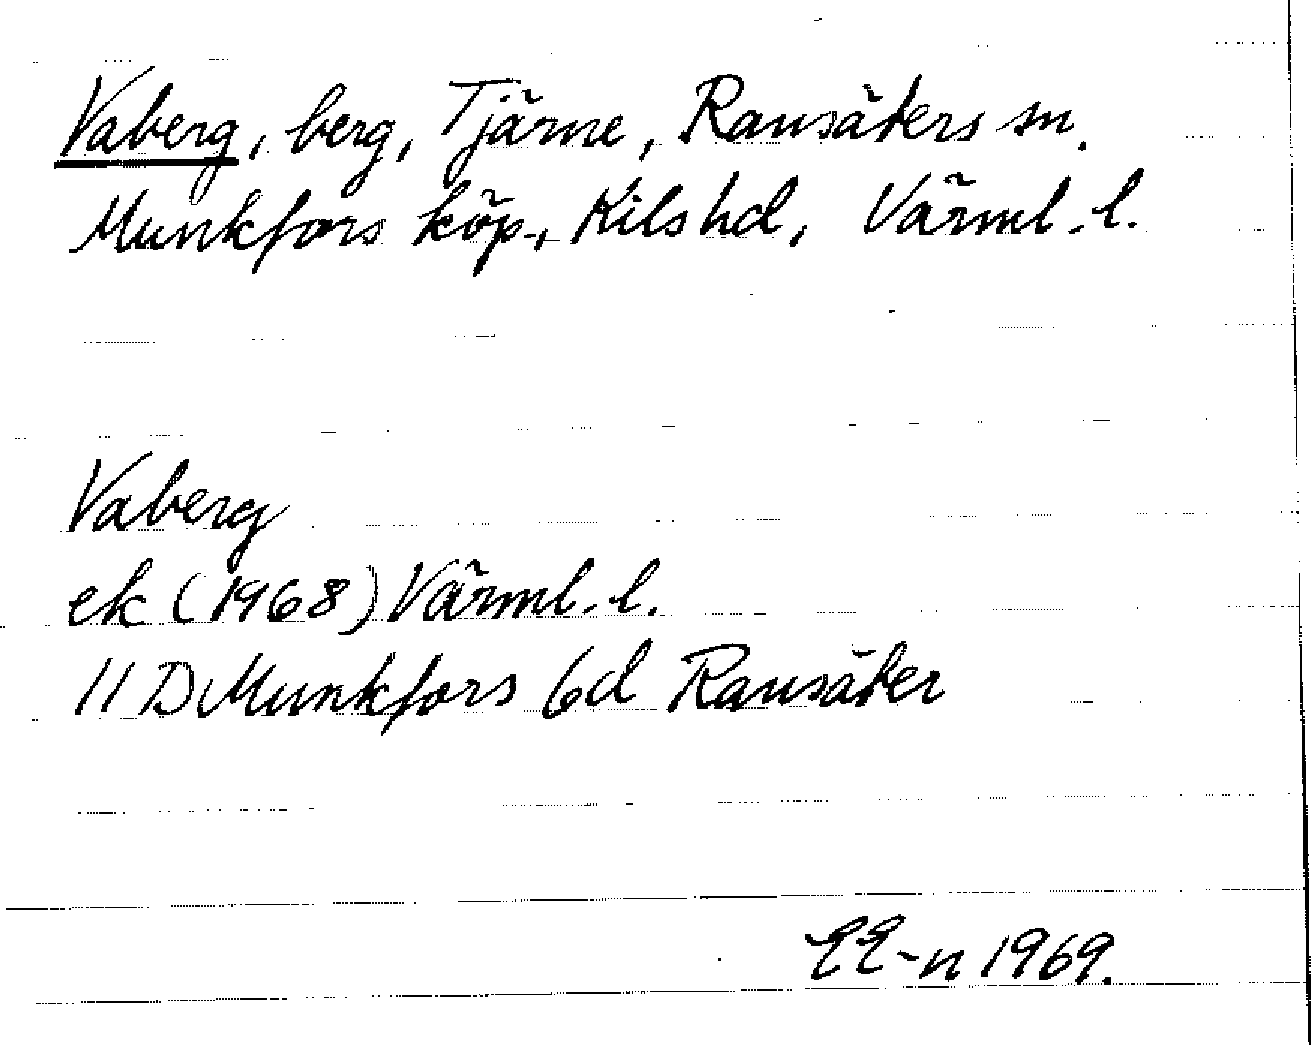 Vaberg, berg, Tjärne, Ransäters sn.
Munkfors köp., Kils hd, Värml. l.
Vaberg
ek (1968) Värml. l.
11 D Munkfors 6d Ransäter
EE-n 1969.